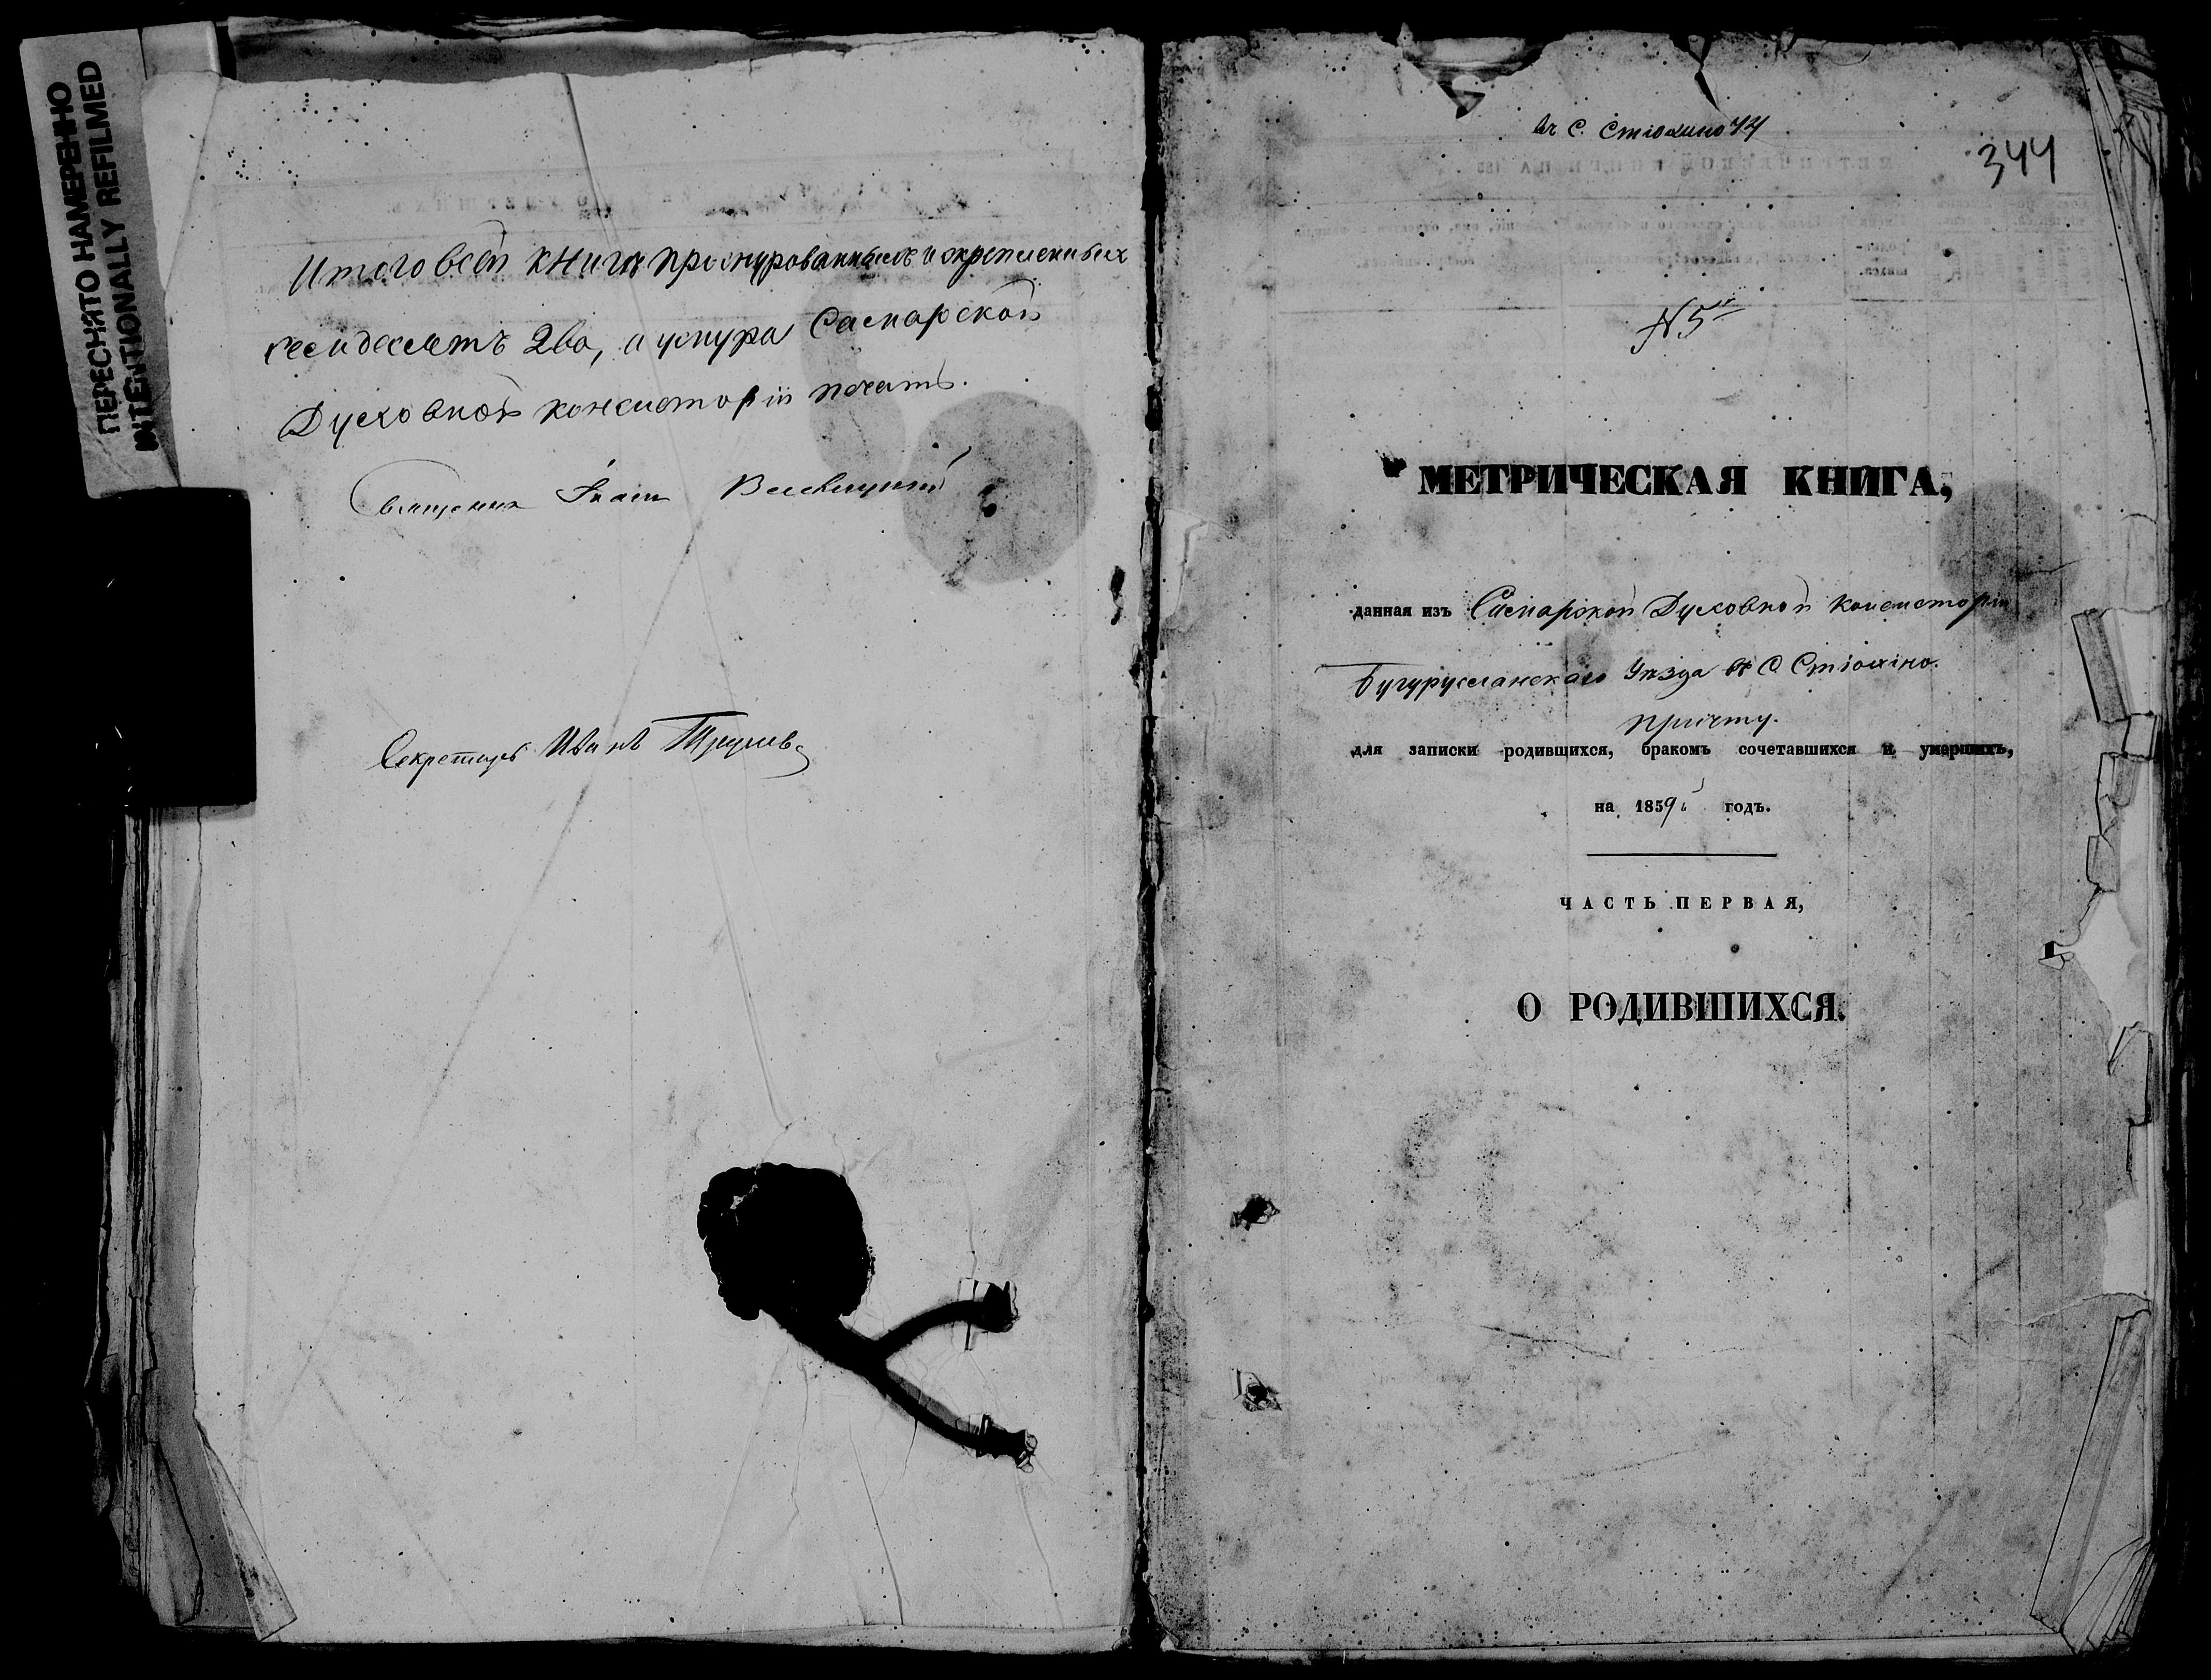 ПЕРЕСНЯТО НАМЕРЕННО
INTENTIONALLY REFILMED
Итого в сей книге прошнурованныхъ и скрепленныхъ
десятъ два, и у снура Самарской
Духовной консисторіи печать.
Священник Іоанн
Секретарь Иванъ
въ С. Стюхино 44
344
N 5й
МЕТРИЧЕСКАЯ КНИГА,
данная изъ Самарской Духовной консисторіи
Бугурусланскаго Уѣзда въ С Стюхино.
причту.
для записки родившихся, бракомъ сочетавшихся и умершихъ,
на 1859й годъ.
ЧАСТЬ ПЕРВАЯ,
О РОДИВШИХСЯ.